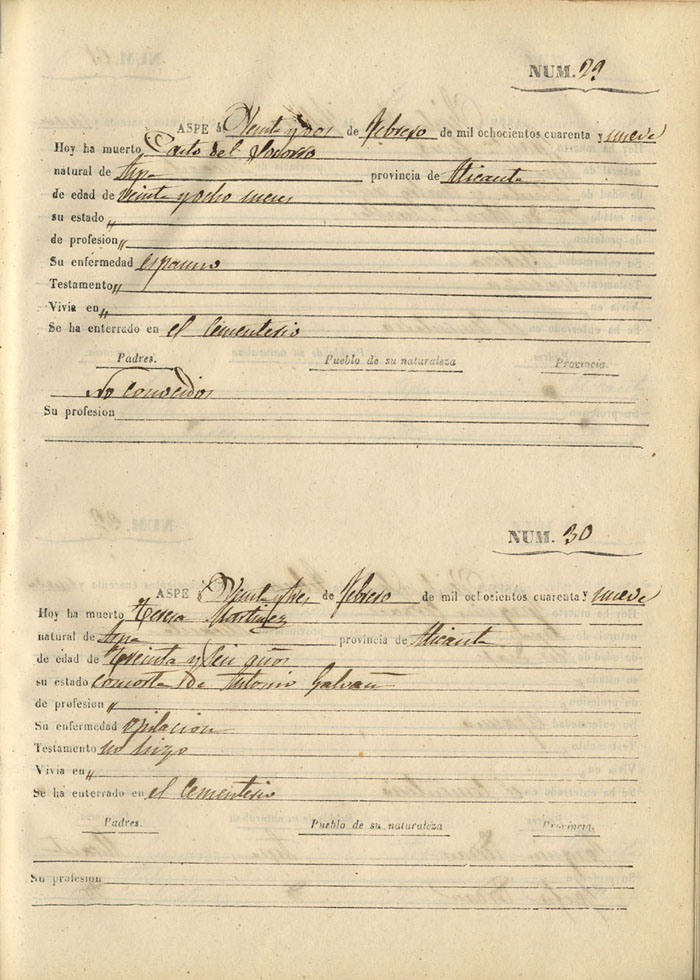 NUM. 29
ASPE á Veinte y dos de Febrero de mil ochocientos cuarenta y nueve
Hoy ha muerto del Socorro
natural de Aspe provincia de Alicante
de edad de veinte y ocho meses
su estado "
de profesion "
Su enfermedad espasmo
Testamento "
Vivia en "
Se ha enterrado en el Cementerio
Padres. Pueblo de su naturaleza Provincia.
No conocidos
Su profesion
NUM. 30
ASPE á Veinte y tres de Febrero de mil ochocientos cuarenta y nueve
Hoy ha muerto Teresa Martinez
natural de Aspe provincia de Alicante
de edad de Treinta y seis años
su estado consorte de Antonio Galvañ
de profesion "
Su enfermedad opilacion
Testamento no hizo
Vivia en "
Se ha enterrado en el Cementerio
Padres. Pueblo de su naturaleza Provincia.
Su profesion